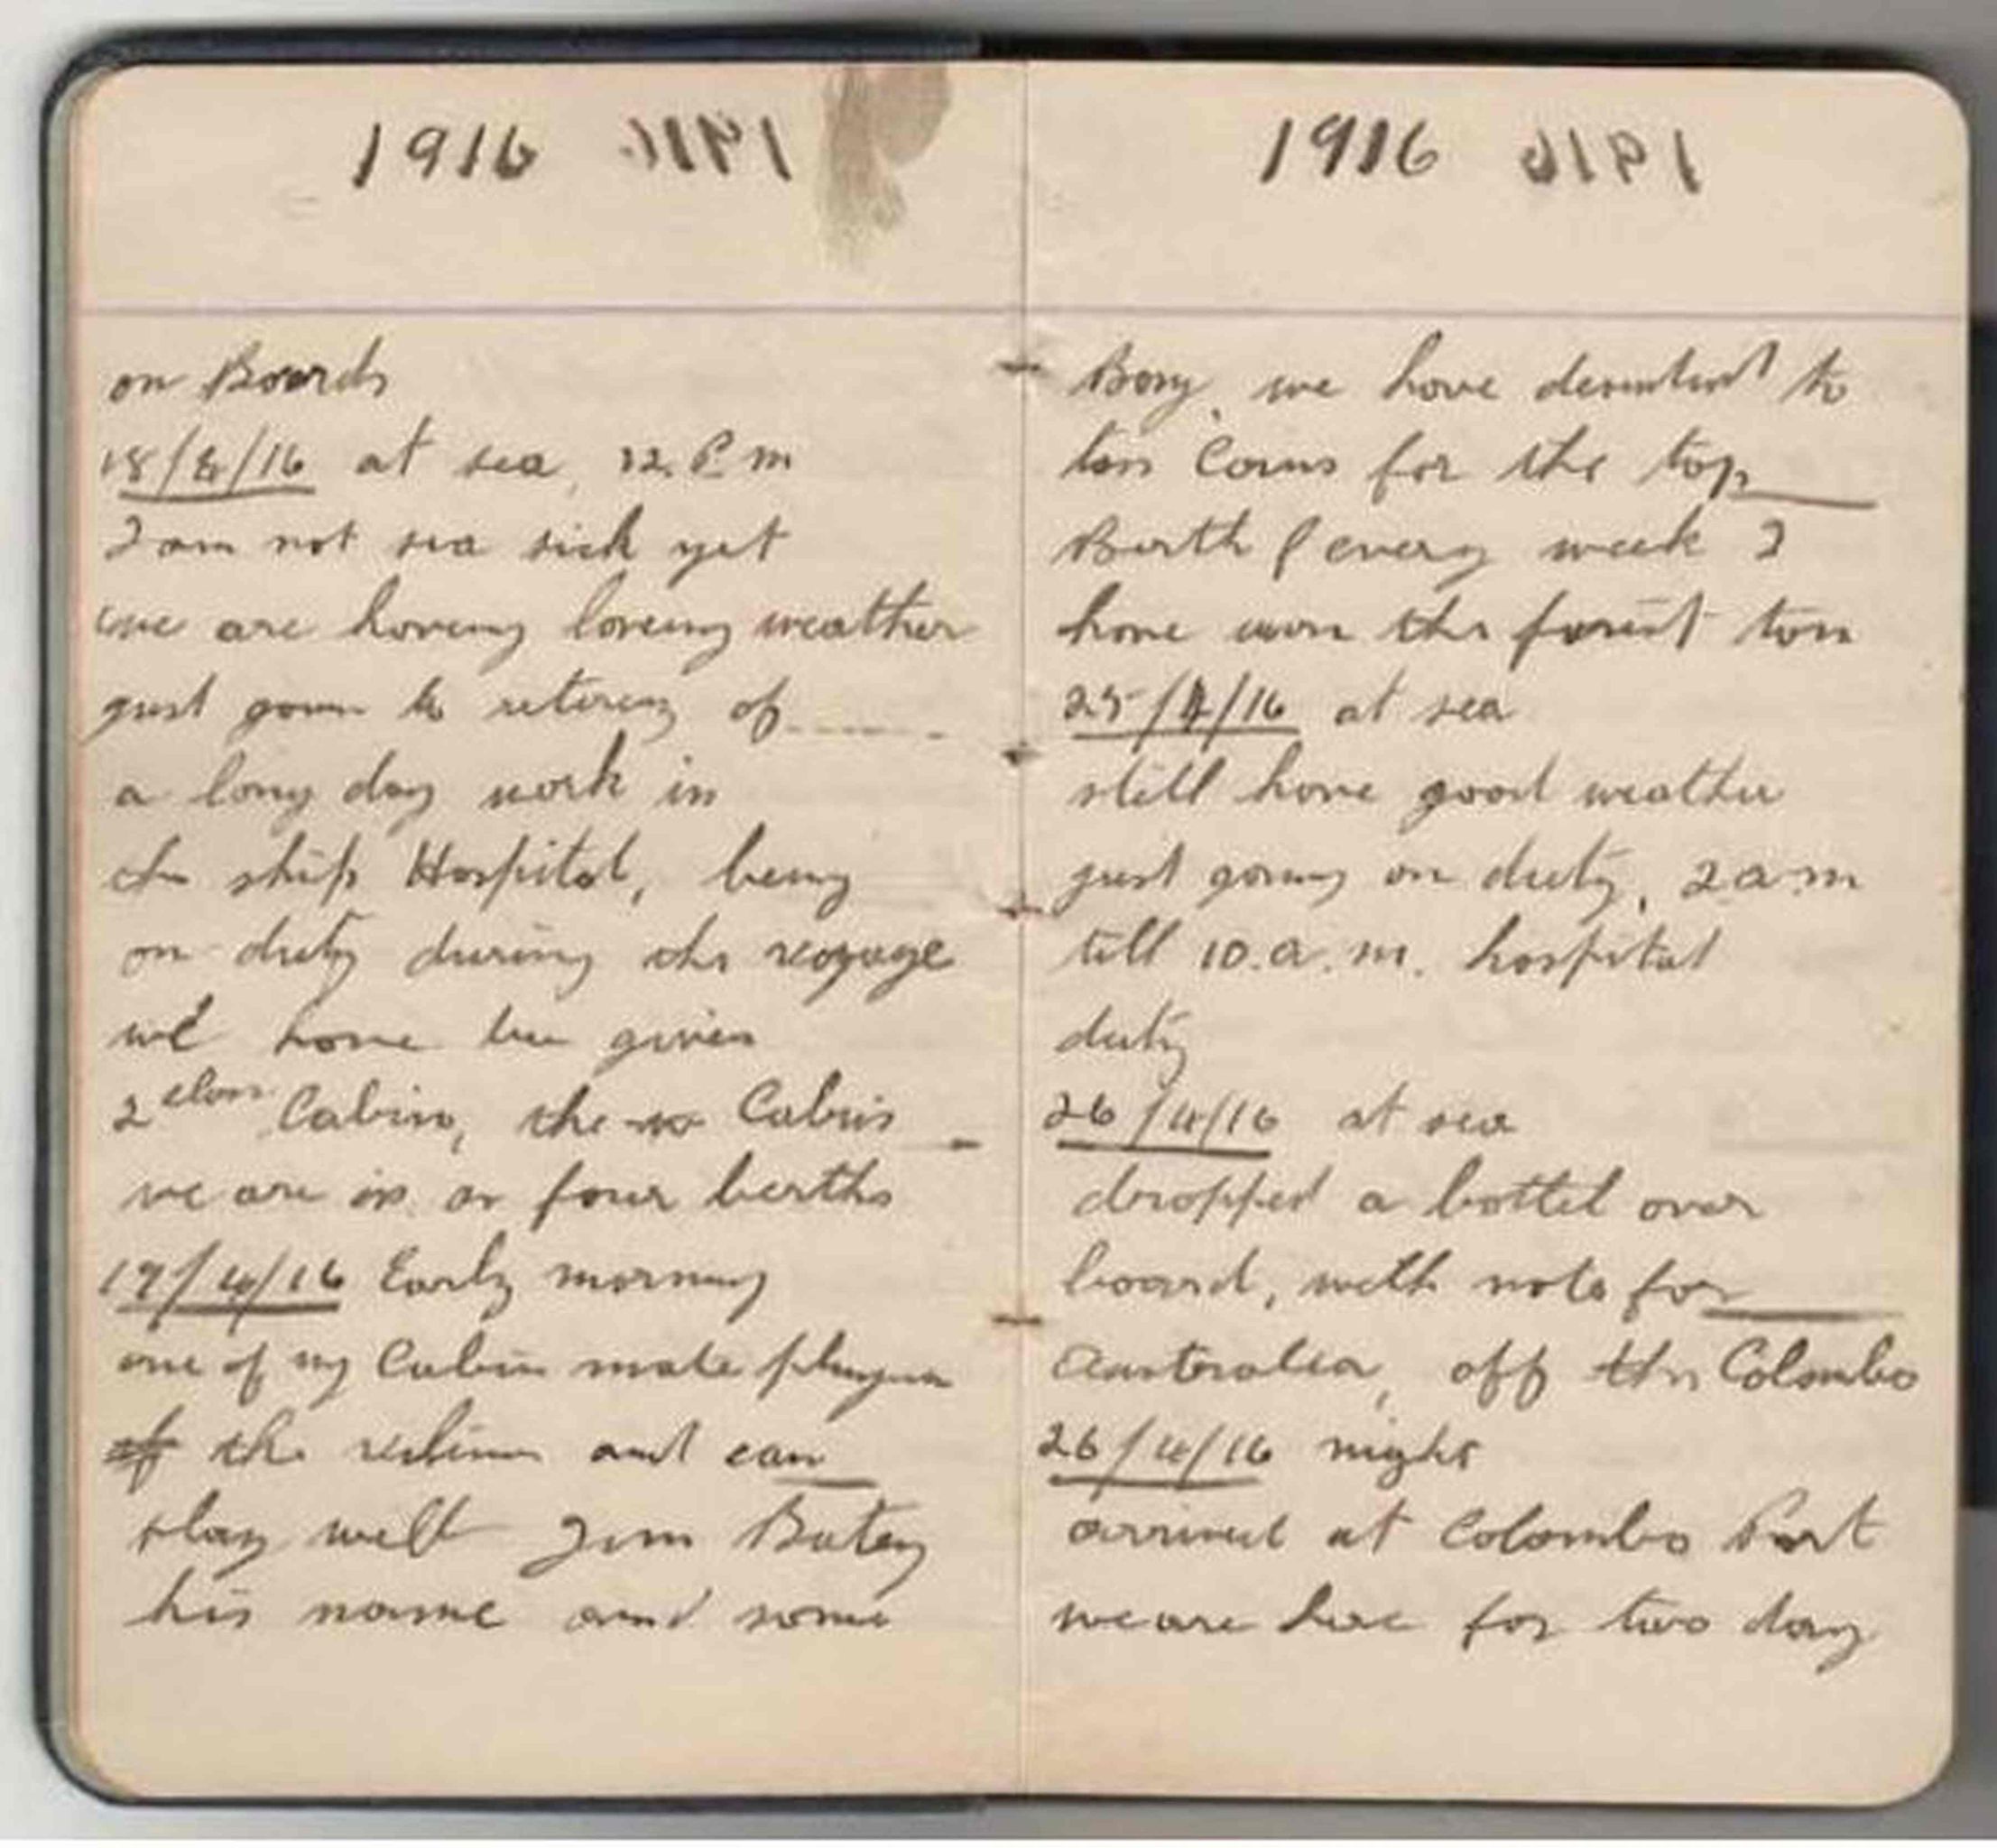 1916
on Boards
18/4/16 at sea, 12. P.m
I am not sea sick yet
we are haveing loveing weather
just goin to retireing of
a long day work in
ship Hospital, being
on duty during the voyage
we have be given
2 class Cabin, the Cabin
we are in or four berths
19/4/16 Early morning
one of my Cabin mate
the and can
play well Jim Batey
his name and some
1916
Bory, we have to
toss Coins for the top
Burth every week I
have won the toss
25/4/16 at sea
still have good weather
just going on duty, 2 a.m
till 10.a.m. hospital
duty
26/4/16 at sea
dropped a bottel over
board, with note for
Australia, off the Colombo
26/4/16 night
arrived at Colombo Port
we are here for two day